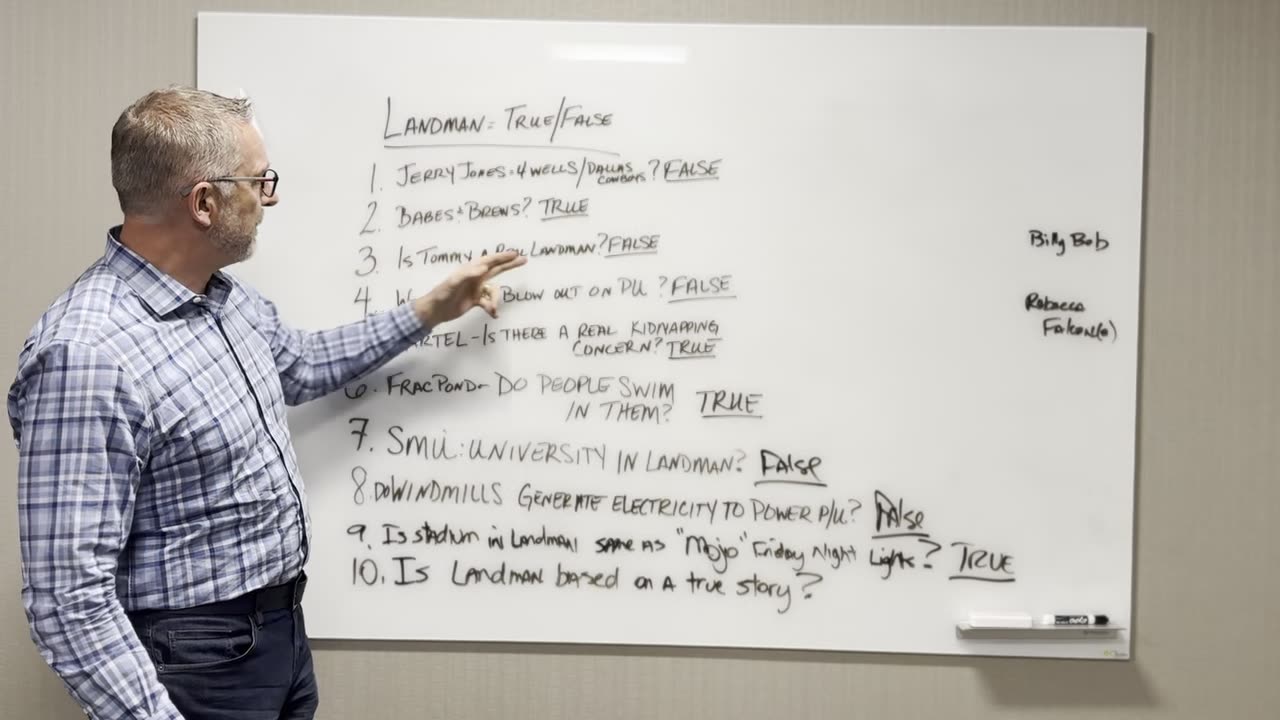 LANDMAN = TRUE/FALSE
1. JERRY JONES = 4 WELLS/DALLAS COWBOYS? FALSE
2. BABES & BREWS? TRUE
3. IS TOMMY A REAL LANDMAN? FALSE
4. BLOW OUT ON PU? FALSE
CARTEL - IS THERE A REAL KIDNAPPING
CONCERN? TRUE
6. FRAC POND - DO PEOPLE SWIM
IN THEM? TRUE
7. SMU: UNIVERSITY IN LANDMAN? FALSE
8. DO WINDMILLS GENERATE ELECTRICITY TO POWER P/U? FAlse
9. Is stadium in Landman same as "Mojo" Friday Night Lights? TRUE
10. Is Landman based on a true story?
Billy Bob
Rebecca
Falcon(e)
EXPO